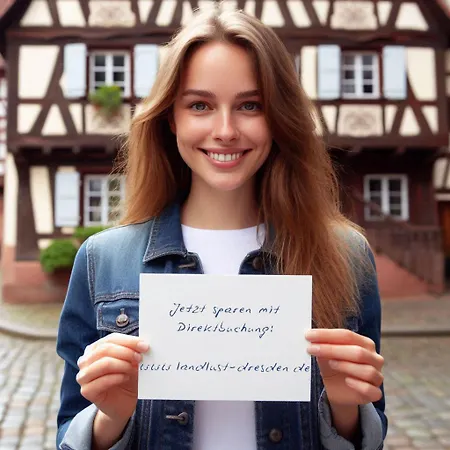 Jetzt sparen mit
Direktbuchung:
www landlust-dresden de